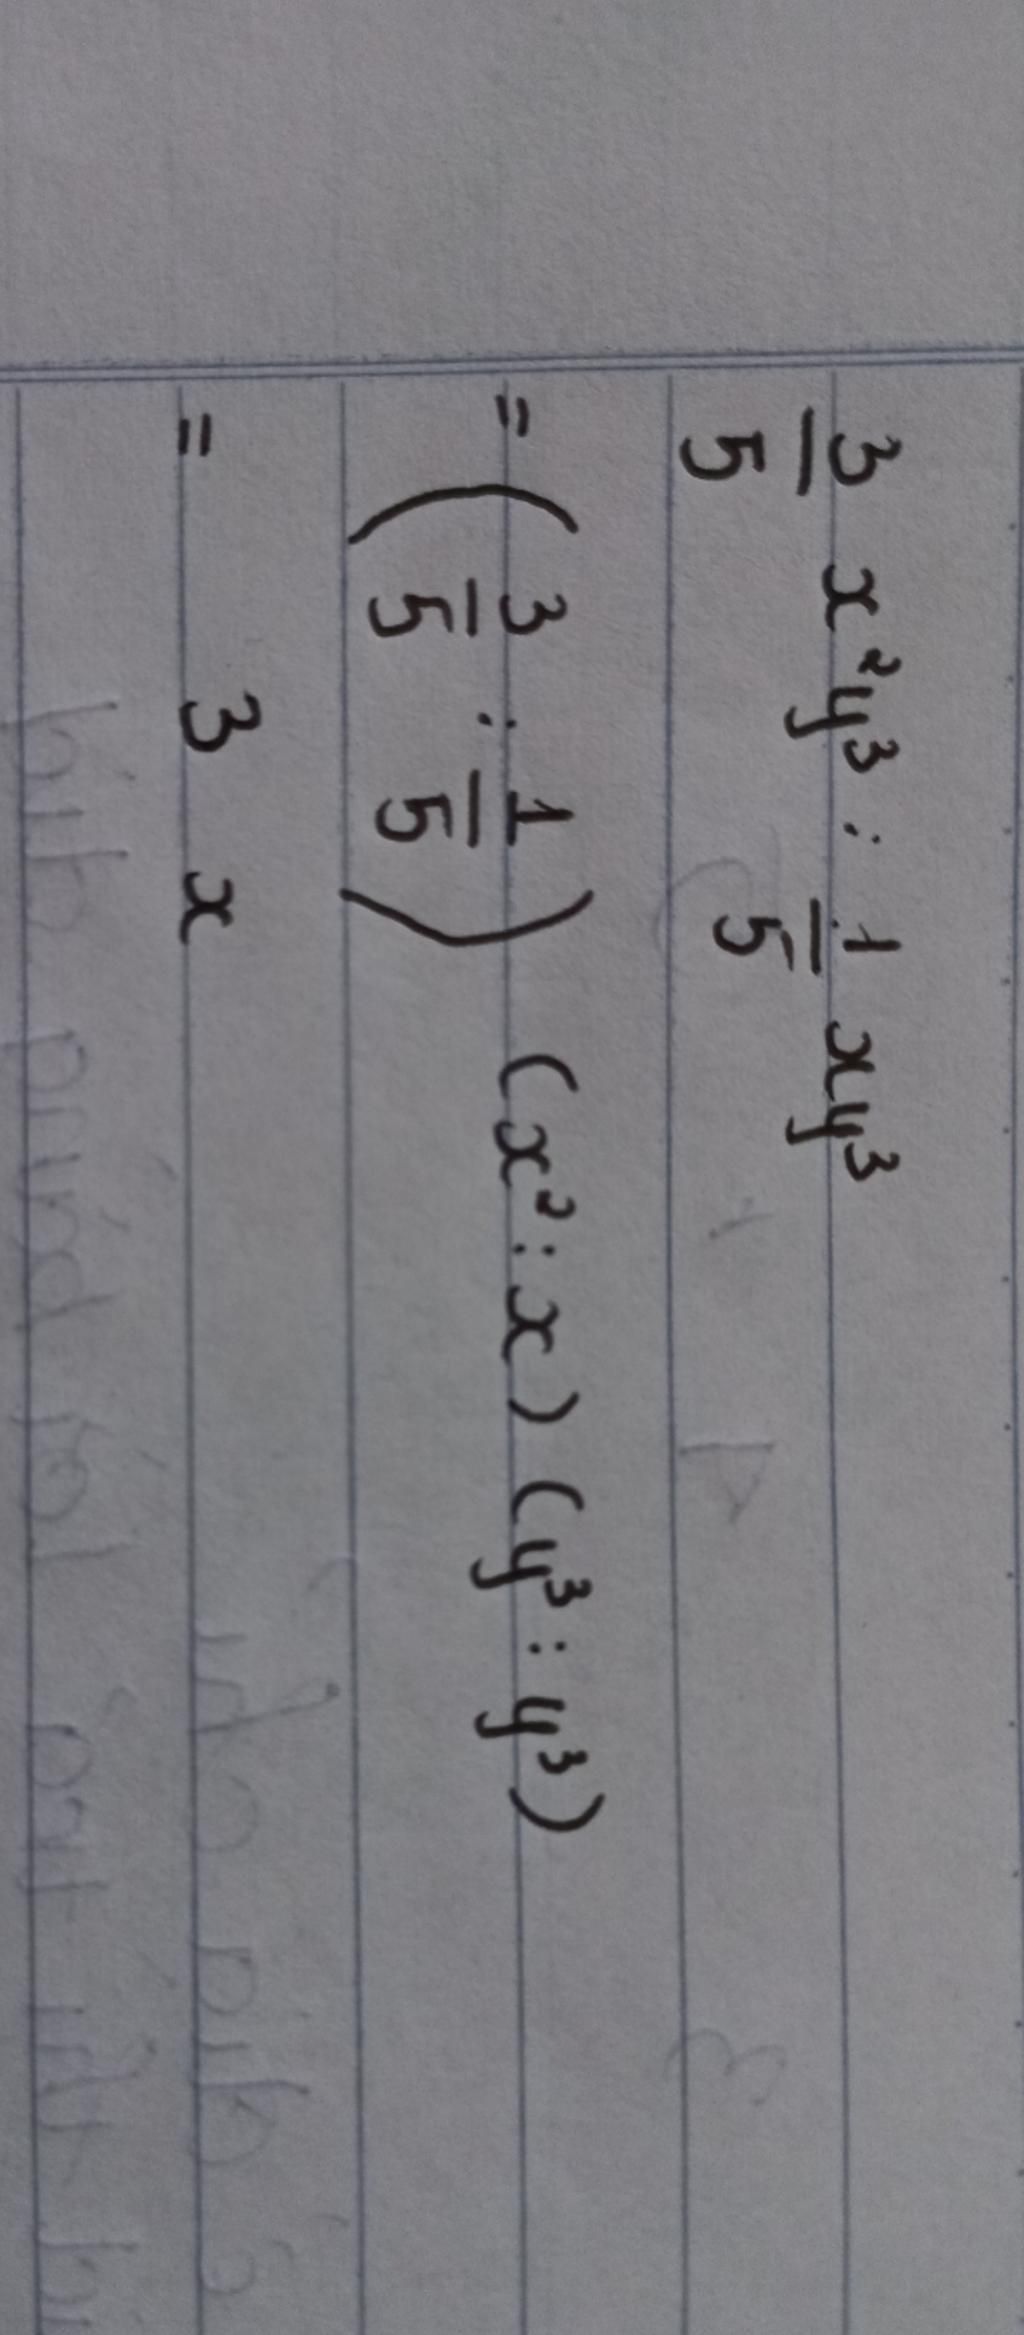 3/5 x²y³ : 1/5 xy³
= (3/5 : 1/5) (x² : x) (y³ : y³)
= 3 x